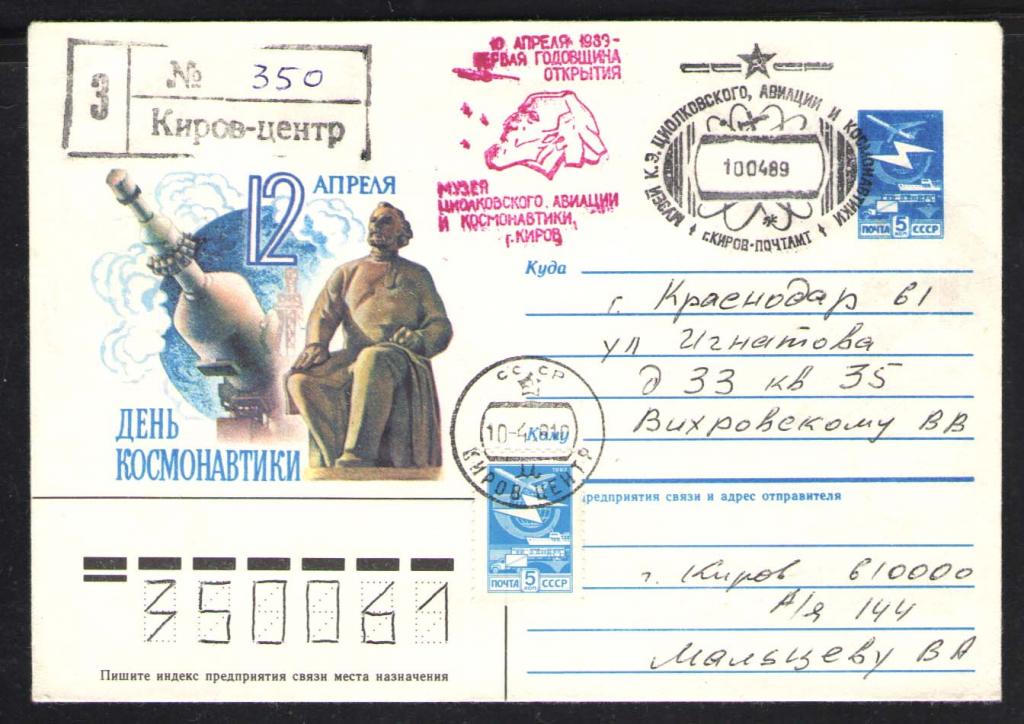 З
№ 350
Киров-центр
10 АПРЕЛЯ 1989-
ПЕРВАЯ ГОДОВЩИНА
ОТКРЫТИЯ
МУЗЕЯ
ЦИОЛКОВСКОГО, АВИАЦИИ
И КОСМОНАВТИКИ,
г. КИРОВ
МУЗЕЙ К.Э. ЦИОЛКОВСКОГО, АВИАЦИИ И КОСМОНАВТИКИ
100489
г.КИРОВ-ПОЧТАМТ
ПОЧТА 5 КОП СССР
12 АПРЕЛЯ
ДЕНЬ
КОСМОНАВТИКИ
Куда
г. Краснодар 61
ул Игнатова
д 33 кв 35
Кому
Вихровскому ВВ
СССР
10-4
КИРОВ ЦЕНТР
предприятия связи и адрес отправителя
1982
ПОЧТА 5 КОП СССР
г. Киров 610000
А/я 144
Мальцеву ВА
350061
Пишите индекс предприятия связи места назначения